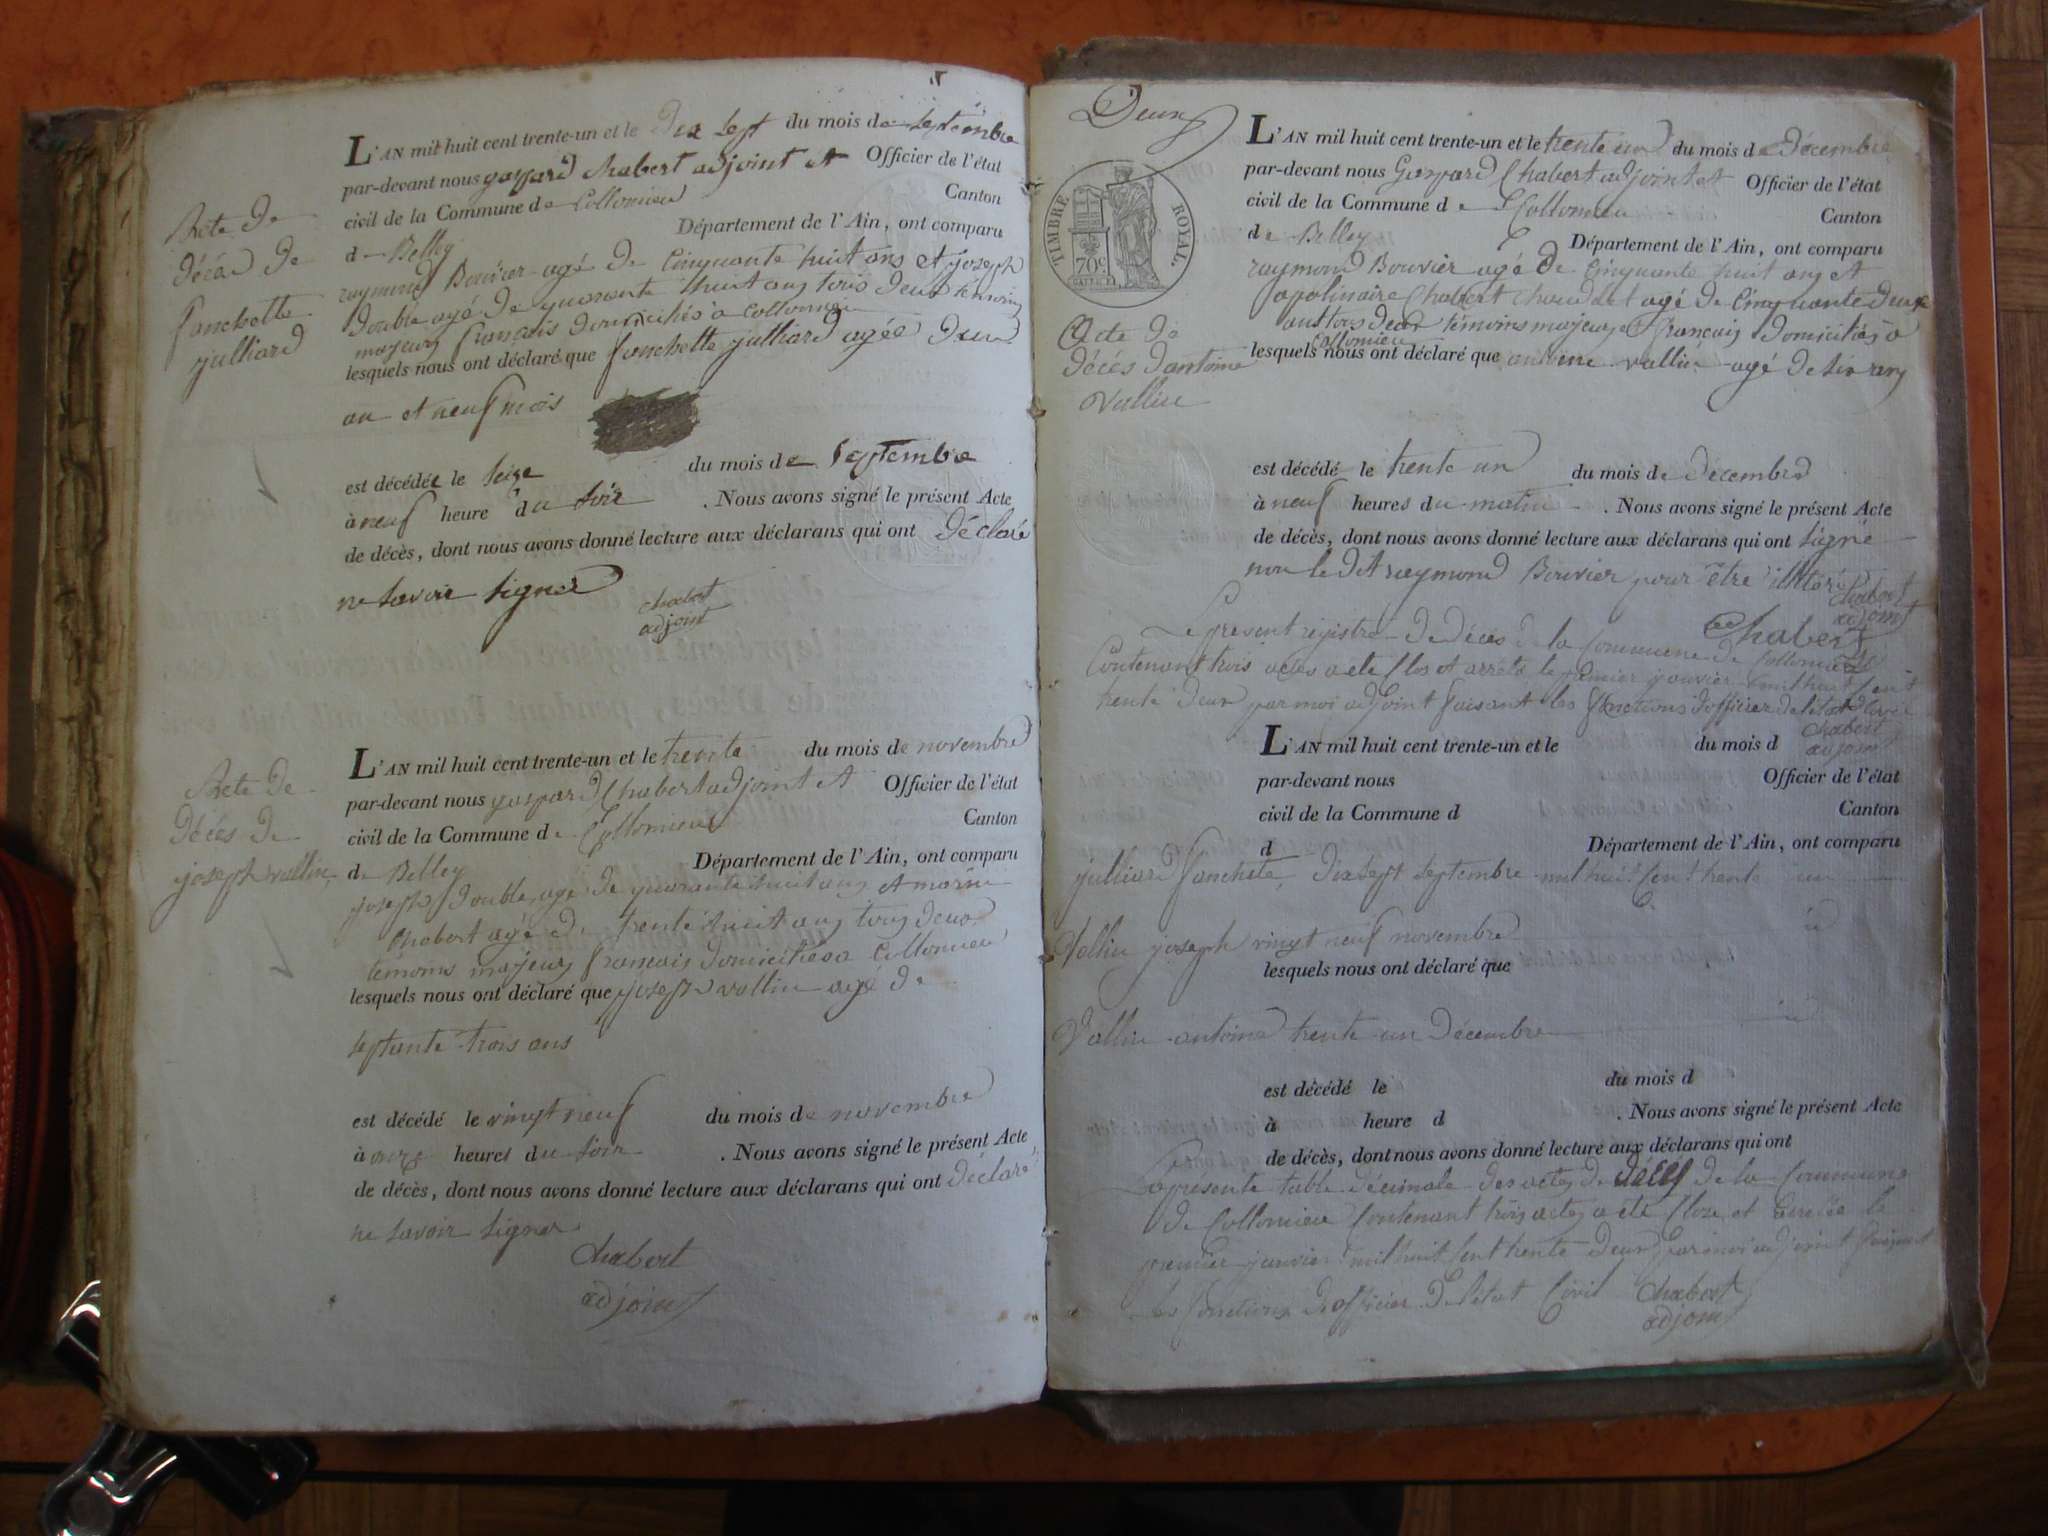 L'AN mil huit cent trente-un et le Dix Sept du mois de Septembre
par-devant nous gaspard Chabert adjoint et Officier de l'état
civil de la Commune de Collomieu Canton
de Belley Département de l'Ain, ont comparu
raymond Bouvier agé de Cinquante huit ans et joseph
Double agé de quarante huit ans tous deux témoins
majeurs français domiciliés à Collomieu
lesquels nous ont déclaré que fanchette julliard agée d'un
an et neuf mois
Acte de
décès de
fanchette
julliard
est décédée le seize du mois de Septembre
à neuf heure du soir . Nous avons signé le présent Acte
de décès, dont nous avons donné lecture aux déclarans qui ont déclaré
ne savoir signer
chabert
adjoint
L'AN mil huit cent trente-un et le trente du mois de novembre
par-devant nous gaspard Chabert adjoint et Officier de l'état
civil de la Commune de Collomieu Canton
de Belley Département de l'Ain, ont comparu
joseph Double agé de quarante huit ans et marin
Chabert agé de trente huit ans tous deux
témoins majeurs français domiciliés a Collomieu
lesquels nous ont déclaré que joseph vallin agé de
septante trois ans
Acte de
décès de
joseph vallin
est décédé le vingt neuf du mois de novembre
à onze heures du soir . Nous avons signé le présent Acte
de décès, dont nous avons donné lecture aux déclarans qui ont déclaré
ne savoir signer
Chabert
adjoint
Deux
TIMBRE ROYAL.
70 c.
L'AN mil huit cent trente-un et le trente un du mois de Décembre
par-devant nous Gaspard Chabert adjoint et Officier de l'état
civil de la Commune de Collomieu Canton
de Belley Département de l'Ain, ont comparu
raymond Bouvier agé de Cinquante huit ans et
apolinaire Chabert agé de Cinquante deux
ans tous deux témoins majeurs français domiciliés à
Collomieu
lesquels nous ont déclaré que antoine vallin agé de six ans
Acte de
décés d'antoine
Vallin
est décédé le trente un du mois de décembre
à neuf heures du matin . Nous avons signé le présent Acte
de décès, dont nous avons donné lecture aux déclarans qui ont signé
non le dit raymond Bouvier pour être illitéré
Chabert
adjoint
Chabert
Le present registre de décés de la Commune de Collomieu
Contenant trois actes a eté clos et arreté le premier janvier mil huit cent
trente deux par moi adjoint faisant les fonctions d'officier de l'état civil
Chabert
adjoint
L'AN mil huit cent trente-un et le du mois d
par-devant nous Officier de l'état
civil de la Commune d Canton
d Département de l'Ain, ont comparu
julliard fanchete, dix sept septembre mil huit cent trente un
Vallin joseph vingt neuf novembre id
lesquels nous ont déclaré que
Vallin antoine trente un Décembre id
est décédé le du mois d
à heure d . Nous avons signé le présent Acte
de décès, dont nous avons donné lecture aux déclarans qui ont
La presente table décennale des actes de décés de la Commune
de Collomieu Contenant trois actes a eté close et arretée le
premier janvier mil huit cent trente deux par moi adjoint faisant
les fonctions d'officier de l'état Civil Chabert
adjoint